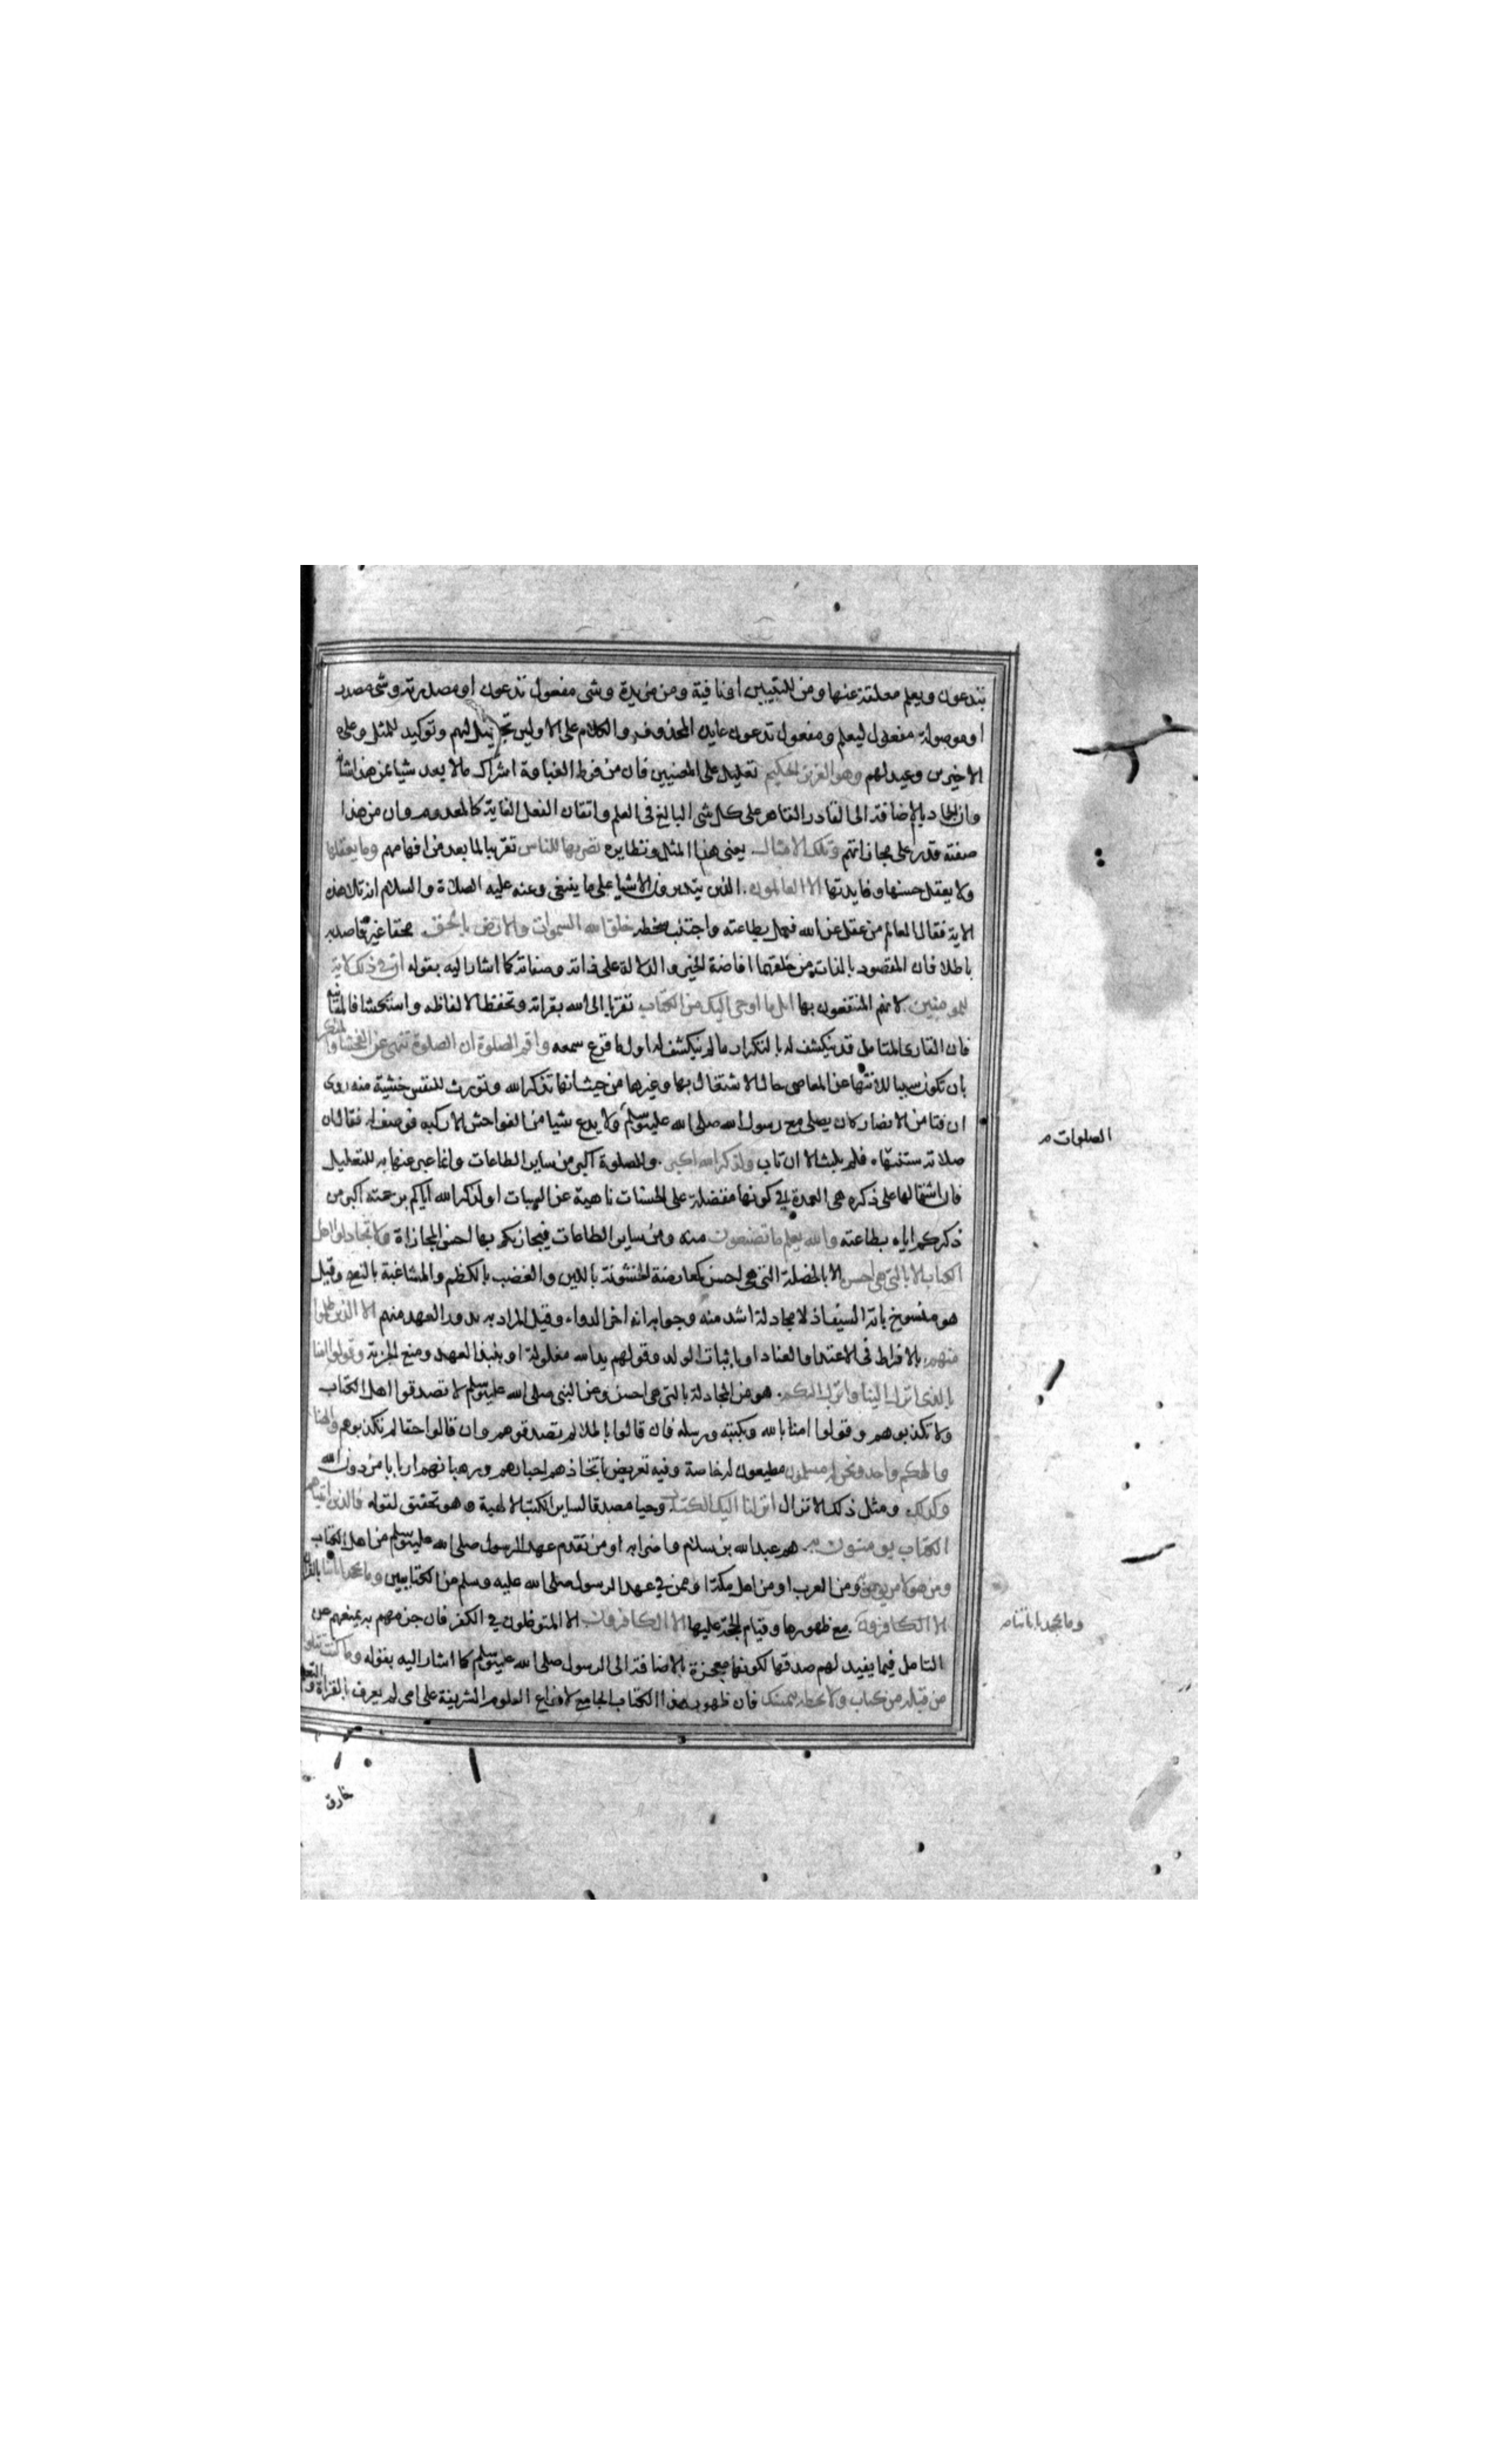 بتدعون ويعلم معلقة عنها ومن للتبيين او نافية ومن مزيدة وشى مفعول تدعون او مصدرية وشى مصدر
او موصولة مفعول ليعلم ومفعول تدعون عايده المحذوف والكلام على الاولين تجهيل لهم وتوكيد للمثل وعلى
الاخيرين وعيد لهم وهو العزيز الحكيم تعليل على المعنيين فان من فرط الغباوة اشراك مالا يعد شيا بمن هذا شانه
وان الجماد بالاضافة الى القادر القاهر على كل شى البالغ فى العلم واتقان الفعل الغاية كالمعدوم وان من هذا
صفته قدر على مجازاتهم وتلك الامثال يعنى هذا المثل ونظايره نضربها للناس تقريبا لما بعد من افهامهم وما يعقلها
ولا يعقل حسنها وفايدتها الا العالمون الذين يتدبرون الاشيا على ما ينبغى وعنه عليه الصلاة والسلام انه تلا هذه
الاية فقال العالم من عقل عن الله فعمل بطاعته واجتنب سخطه خلق الله السموات والارض بالحق محقا غير قاصد به
باطلا فان المقصود بالذات من خلقهما افاضة الخير والدلالة على ذاته وصفاته كما اشار اليه بقوله ان فى ذلك لاية
للمومنين لانهم المنتفعون بها اتل ما اوحى اليك من الكتاب تقربا الى الله بقراته وتحفظا لالفاظه واستكشافا لمعانيه
فان القارى المتامل قد ينكشف له بالتكرار ما لم ينكشف له اول ما قرع سمعه واقم الصلوة ان الصلوة تنهى عن الفحشا والمنكر
بان تكون سببا للانتها عن المعاصى حال الاشتغال بها وغيرها من حيث انها تذكر الله وتورث للنفس خشية منه روى
ان فتا من الانصار كان يصلى مع رسول الله صلى الله عليه وسلم ولا يدع شيا من الفواحش الا ركبه فوصف له فقال ان
صلاته ستنهاه فلم يلبث الا ان تاب ولذكر الله اكبر والصلوة اكبر من ساير الطاعات وانما عبر عنها به للتعليل
فان اشتمالها على ذكره هى العمدة فى كونها مفضلة على الحسنات ناهية عن السيات او لذكر الله اياكم برحمته اكبر من
ذكركم اياه بطاعته والله يعلم ما تصنعون منه ومن ساير الطاعات فيجازيكم بها احسن المجازاة ولا تجادلوا اهل
الكتاب الا بالتى هى احسن الا بالخصلة التى هى احسن كمعارضة الخشونة باللين والغضب بالكظم والمشاغبة بالنصح وقيل
هو منسوخ باية السيف اذ لا مجادلة اشد منه وجوابه انه اخر الدواء وقيل المراد به ذو العهد منهم الا الذين ظلموا
منهم بالافراط فى الاعتدا والعناد او باثبات الولد وقولهم يد الله مغلولة او بنبذ العهد ومنع الجزية وقولوا امنا
بالذى انزل الينا وانزل اليكم هو من المجادلة بالتى هى احسن وعن النبى صلى الله عليه وسلم لا تصدقوا اهل الكتاب
ولا تكذبوهم وقولوا امنا بالله وبكتبه ورسله فان قالوا باطلا لم تصدقوهم وان قالوا حقا لم تكذبوهم والهنا
والهكم واحد ونحن له مسلمون مطيعون له خاصة وفيه تعريض باتخاذهم احبارهم ورهبانهم اربابا من دون الله
وكذلك ومثل ذلك الانزال انزلنا اليك الكتاب وحيا مصدقا لساير الكتب الالهية وهو تحقيق لقوله فالذين اتيناهم
الكتاب يومنون به هم عبد الله بن سلام واضرابه او من تقدم عهد الرسول صلى الله عليه وسلم من اهل الكتاب
ومن هولا من يومن به ومن العرب او من اهل مكة او ممن فى عهد الرسول صلى الله عليه وسلم من الكتابيين وما يجحد باياتنا
الا الكافرون مع ظهورها وقيام الحجة عليها الا الكافرون الا المتوغلون فى الكفر فان جزمهم به يمنعهم عن
التامل فيما يفيد لهم صدقها لكونها معجزة بالاضافة الى الرسول صلى الله عليه وسلم كما اشار اليه بقوله وما كنت تتلوا
من قبله من كتاب ولا تخطه بيمينك فان ظهور هذا الكتاب الجامع لانواع العلوم الشريفة على امى لم يعرف بالقراة والتعلم
خارق
الصلوات م
وما يجحد باياتنا م